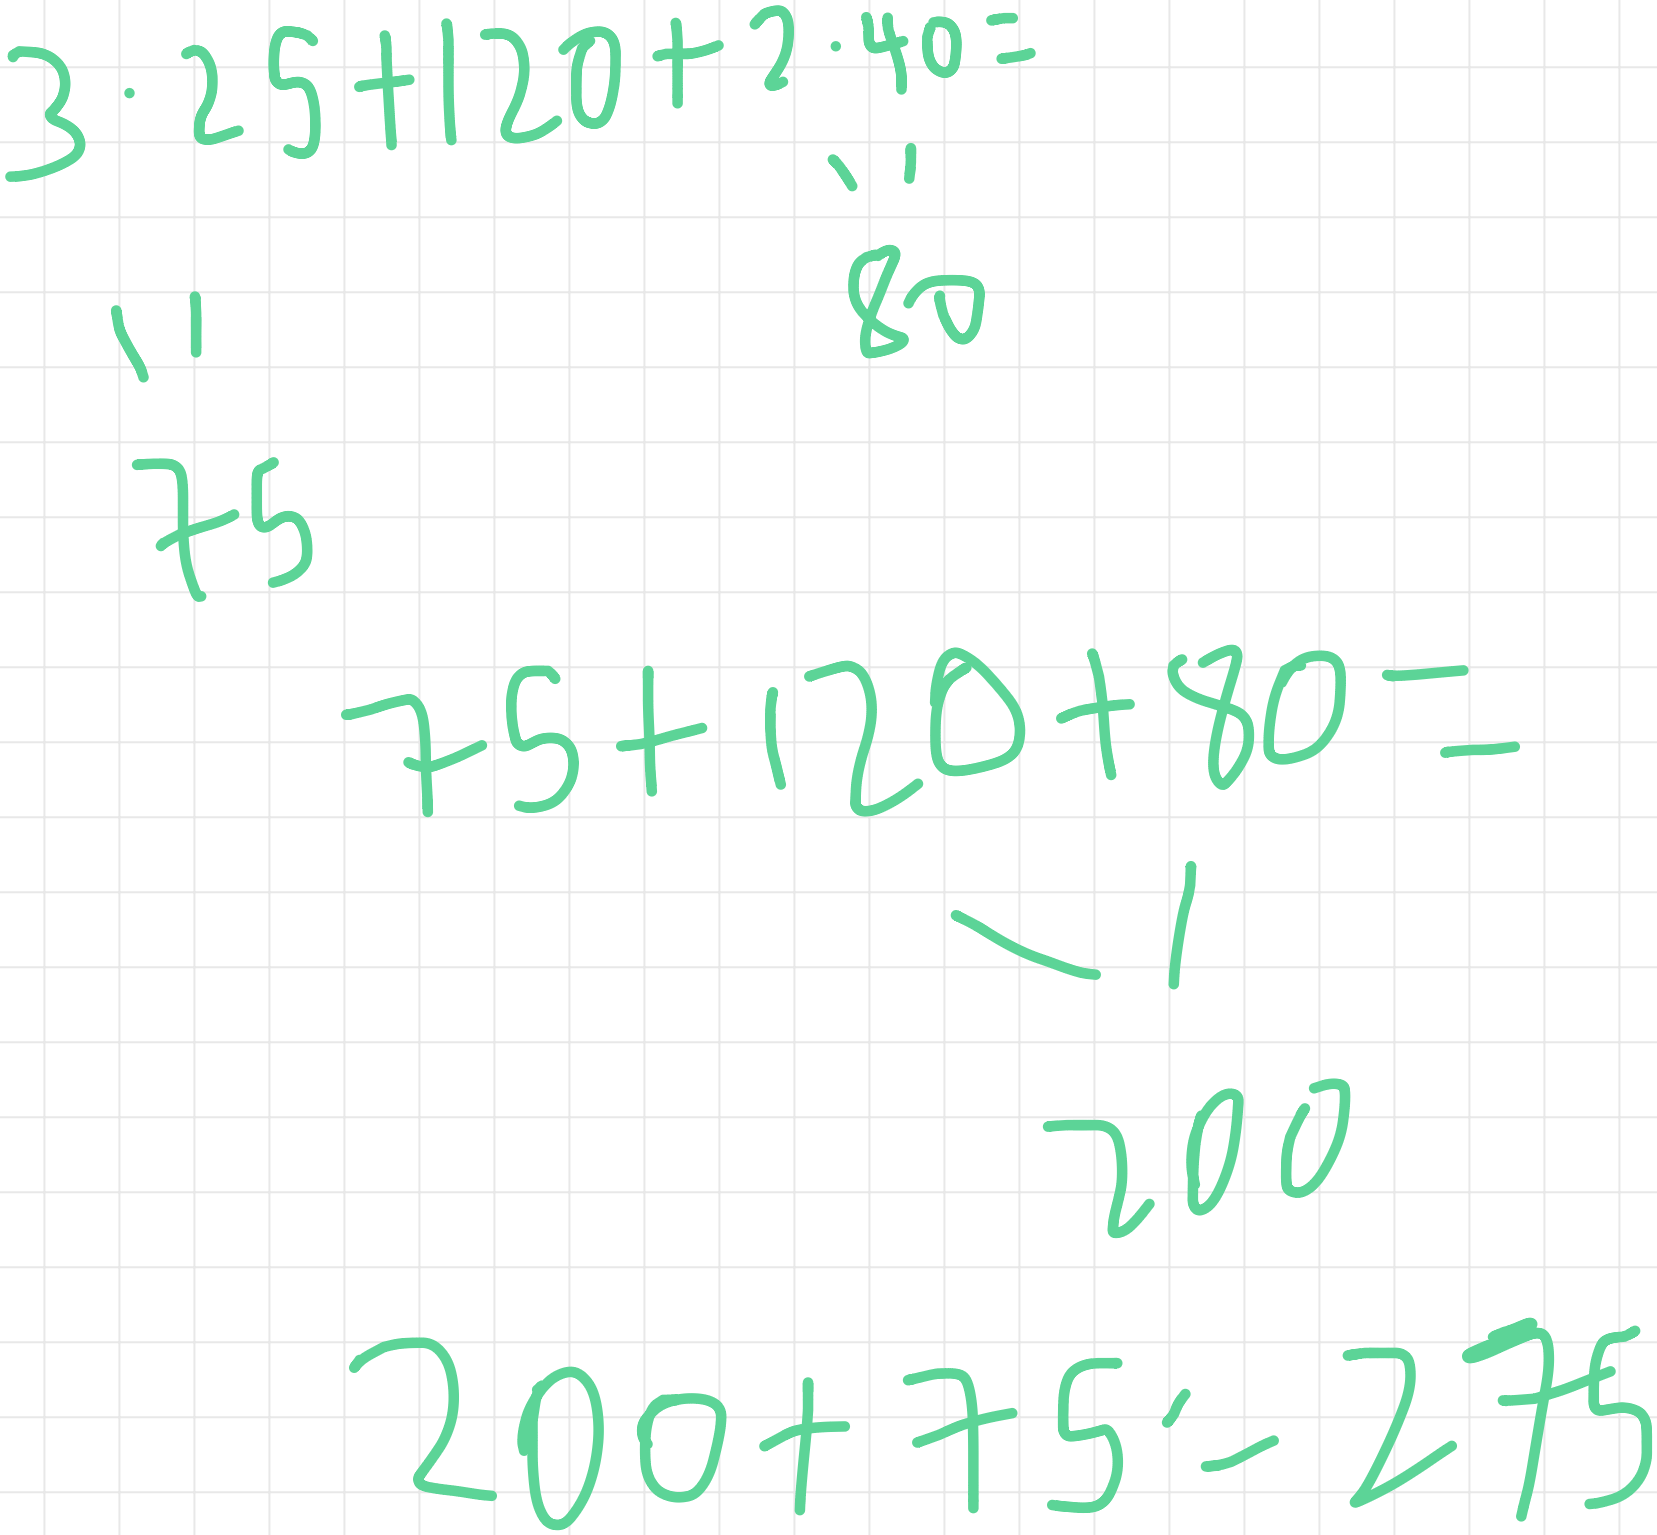 3·25+120+2·40=
80
75
75+120+80=
200
200+75=275